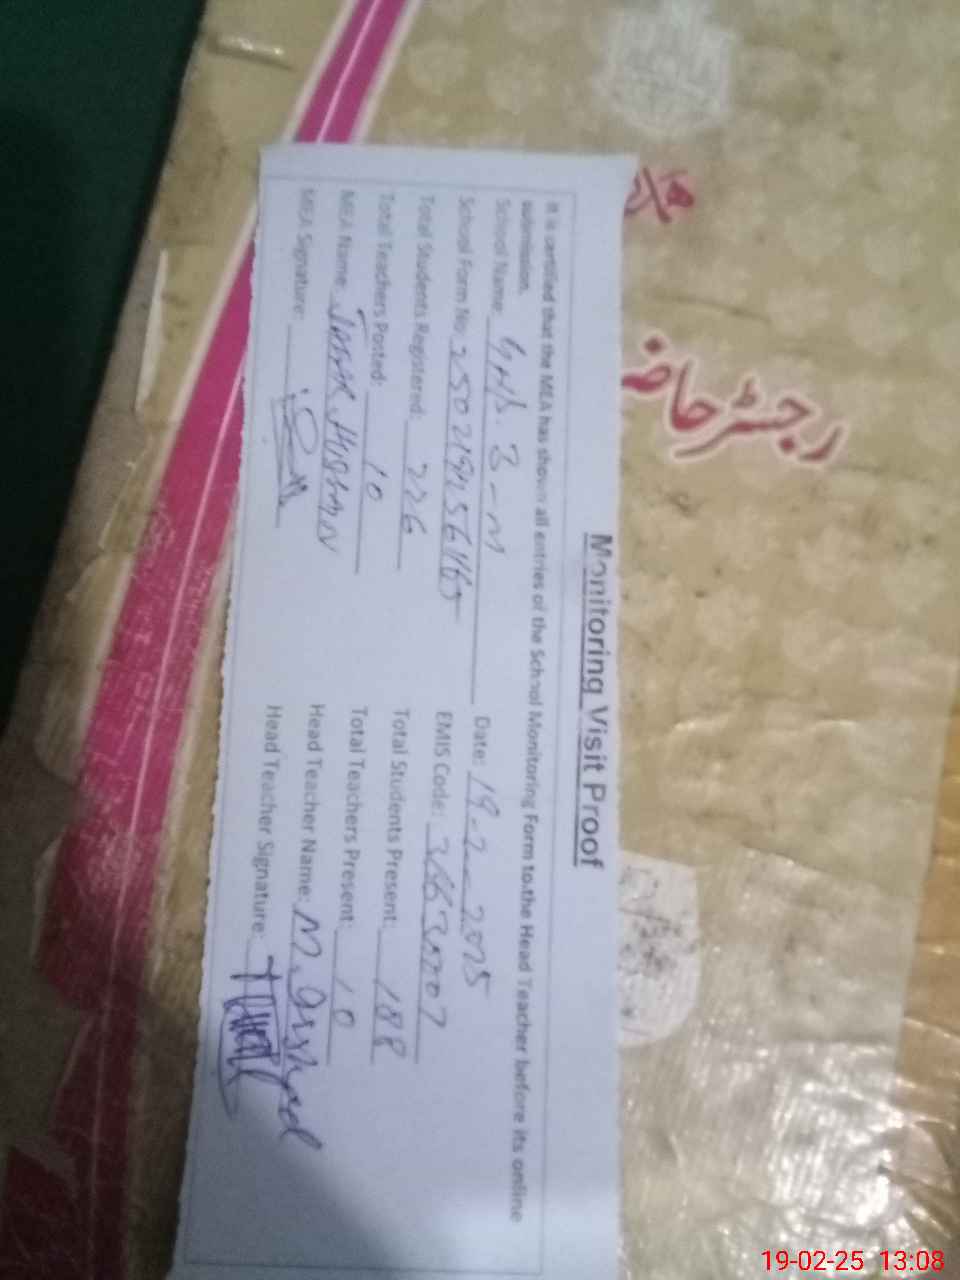 رجسٹر حاضری
Monitoring Visit Proof
It is certified that the MEA has shown all entries of the School Monitoring Form to the Head Teacher before its online
submission.
School Name: GHS. 3-M Date: 19-2-2025
School Form No: EMIS Code:
Total Students Registered: 226 Total Students Present: 188
Total Teachers Posted: 10 Total Teachers Present: 10
MEA Name: Head Teacher Name: M. Arshad
MEA Signature: Head Teacher Signature:
19-02-25 13:08